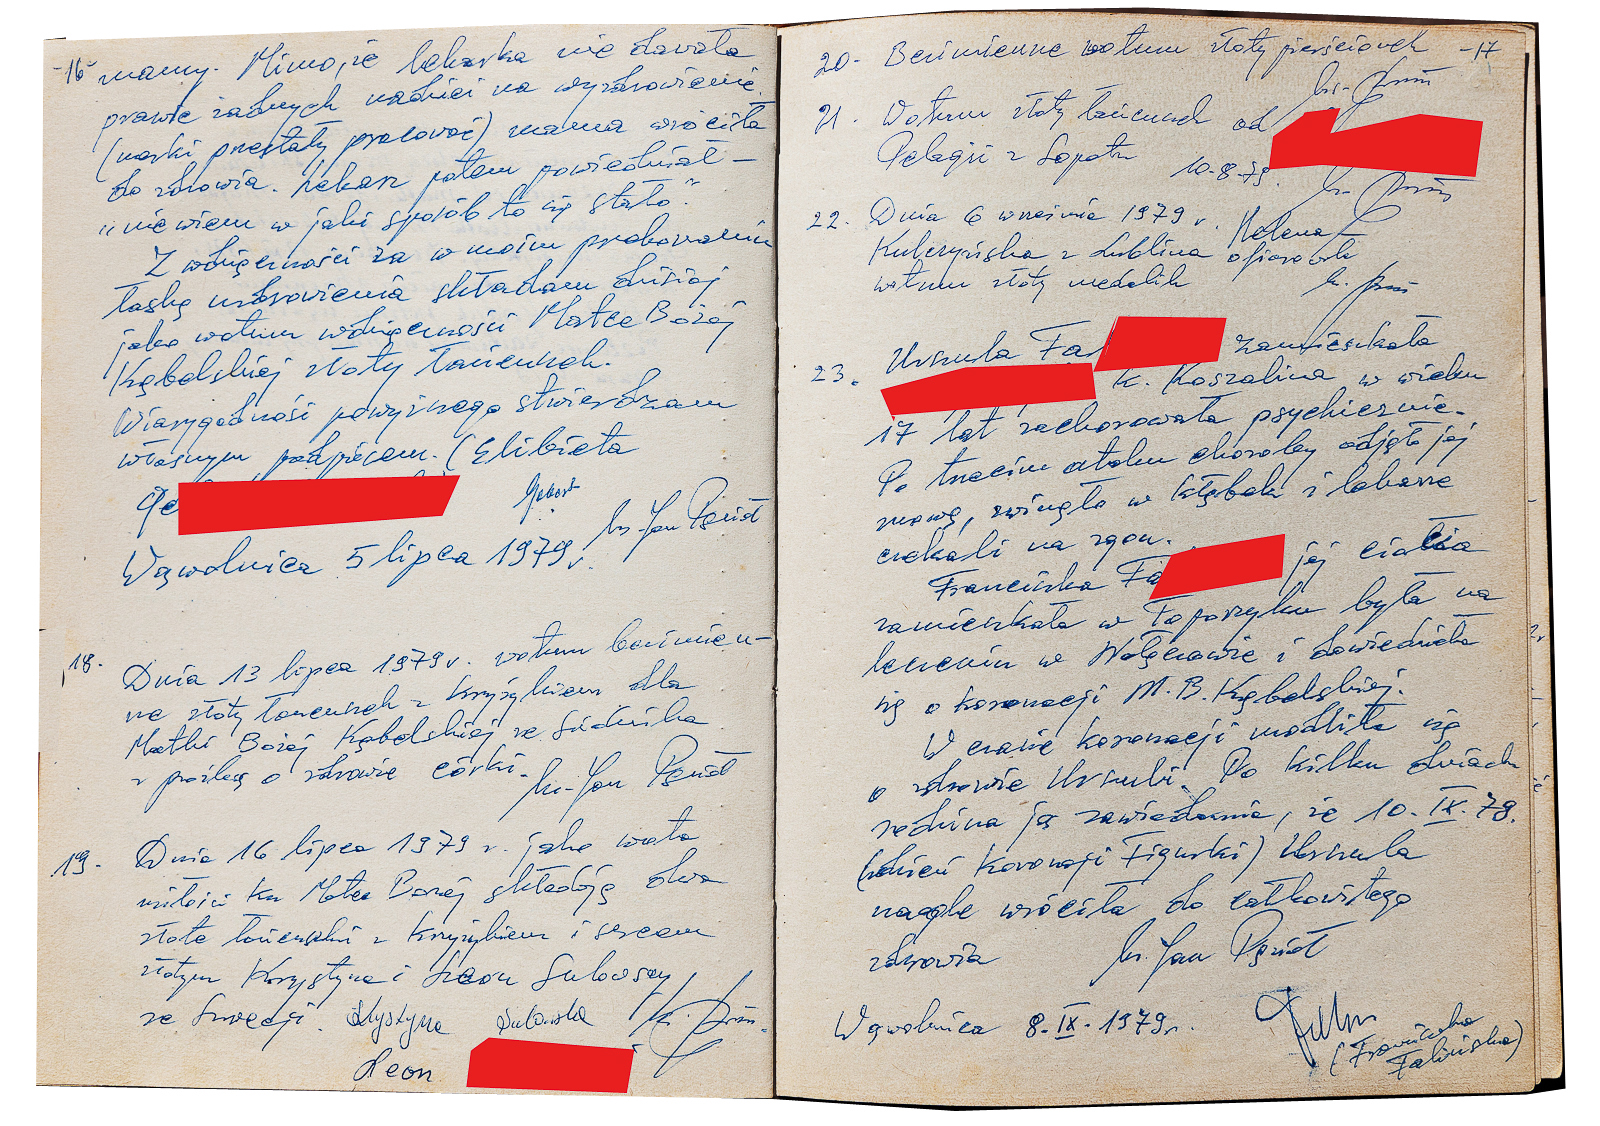 -16-
mamy. Mimo, że lekarka nie dawała
prawie żadnych nadziei na wyzdrowienie.
(nerki przestały pracować) mama wróciła
do zdrowia. Lekarz potem powiedział –
"nie wiem w jaki sposób to się stało".
Z wdzięczności za w moim przekonaniu
łaskę uzdrowienia składam dzisiaj
jako wotum wdzięczności Matce Bożej
Kębelskiej złoty łańcuszek.
Wiarygodność powyższego stwierdzam
własnym podpisem. (Elżbieta
Ge
ks. Jan Pęzioł
Wąwolnica 5 lipca 1979 r.
18. Dnia 13 lipca 1979 r. wotum bezimien-
ne złoty łańcuszek z krzyżykiem dla
Matki Bożej Kębelskiej ze Świdnika
z prośbą o zdrowie córki.
ks. Jan Pęzioł
19. Dnia 16 lipca 1979 r. jako wota
miłości ku Matce Bożej składają dwa
złote łańcuszki z krzyżykiem i sercem
złotym Krystyna i Leon Sulowscy
ze Szwecji. Krystyna Sulowska
Leon
-17
20. Bezimienne wotum złoty pierścionek
21. Wotum złoty łańcuszek od
Pelagii z Sopotu 10-8-79.
22. Dnia 6 września 1979 r. Helena
Kulczyńska z Lublina ofiarowała
wotum złoty medalik
23. Urszula Fa zamieszkała
k. Koszalina w wieku
17 lat zachorowała psychicznie.
Po trzecim ataku choroby odjęło jej
mowę, zwinęła w kłębek i lekarze
czekali na zgon.
Franciszka Fa jej ciocia
zamieszkała w Toporzyku była na
leczeniu w Nałęczowie i dowiedziała
się o koronacji M. B. Kębelskiej.
W czasie koronacji modliła się
o zdrowie Urszuli. Po kilku dniach
rodzina ją zawiadamia, że 10. IX. 78.
(dzień koronacji Figurki) Urszula
nagle wróciła do całkowitego
zdrowia ks. Jan Pęzioł
Wąwolnica 8. IX. 1979 r.
(Franciszka
Falińska)